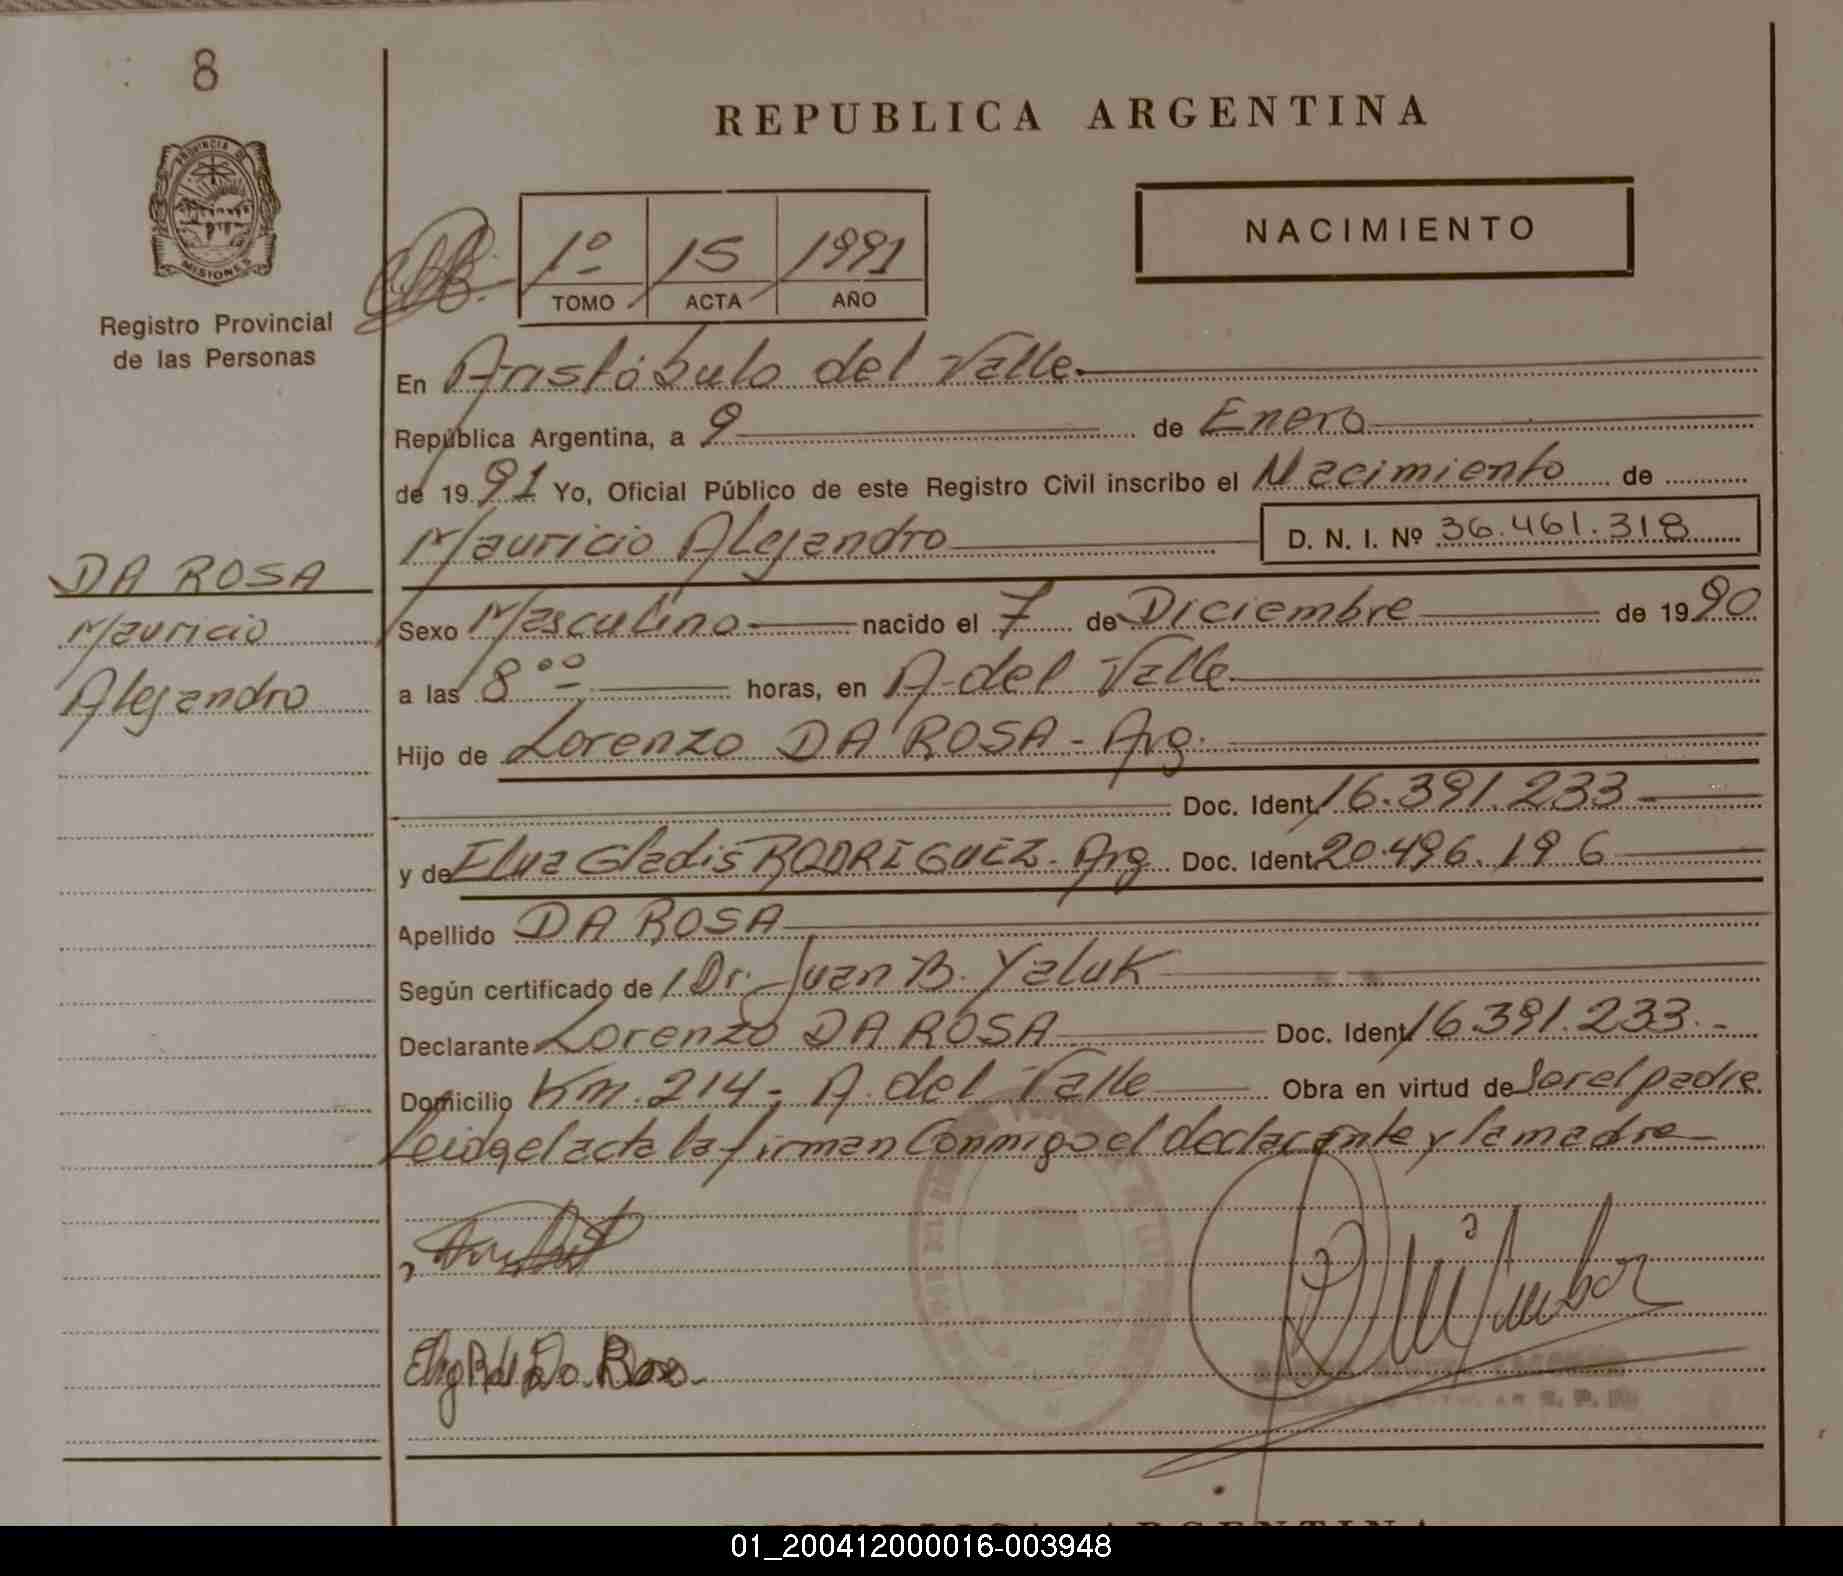 8
REPUBLICA ARGENTINA
PROVINCIA DE
MISIONES
Registro Provincial
de las Personas
1º 15 1991
TOMO ACTA AÑO
NACIMIENTO
En Aristóbulo del Valle.
República Argentina, a 9 de Enero
de 1991 Yo, Oficial Público de este Registro Civil inscribo el Nacimiento de
Mauricio Alejandro D. N. I. Nº 36.461.318
DA ROSA
Mauricio
Alejandro
Sexo Masculino nacido el 7 de Diciembre de 1990
a las 8 ºº horas, en A. del Valle
Hijo de Lorenzo DA ROSA - Arg.
Doc. Ident. 16.391.233 -
y de Elva Gladis RODRIGUEZ - Arg. Doc. Ident. 20.496.196
Apellido DA ROSA
Según certificado de l Dr. Juan B. Yaluk
Declarante Lorenzo DA ROSA Doc. Ident. 16.391.233. -
Domicilio Km. 214 - A. del Valle Obra en virtud de Ser el padre
Leida el acta la firman Conmigo el declarante y la madre
Da Rosa
REPUBLICA ARGENTINA
01_200412000016-003948